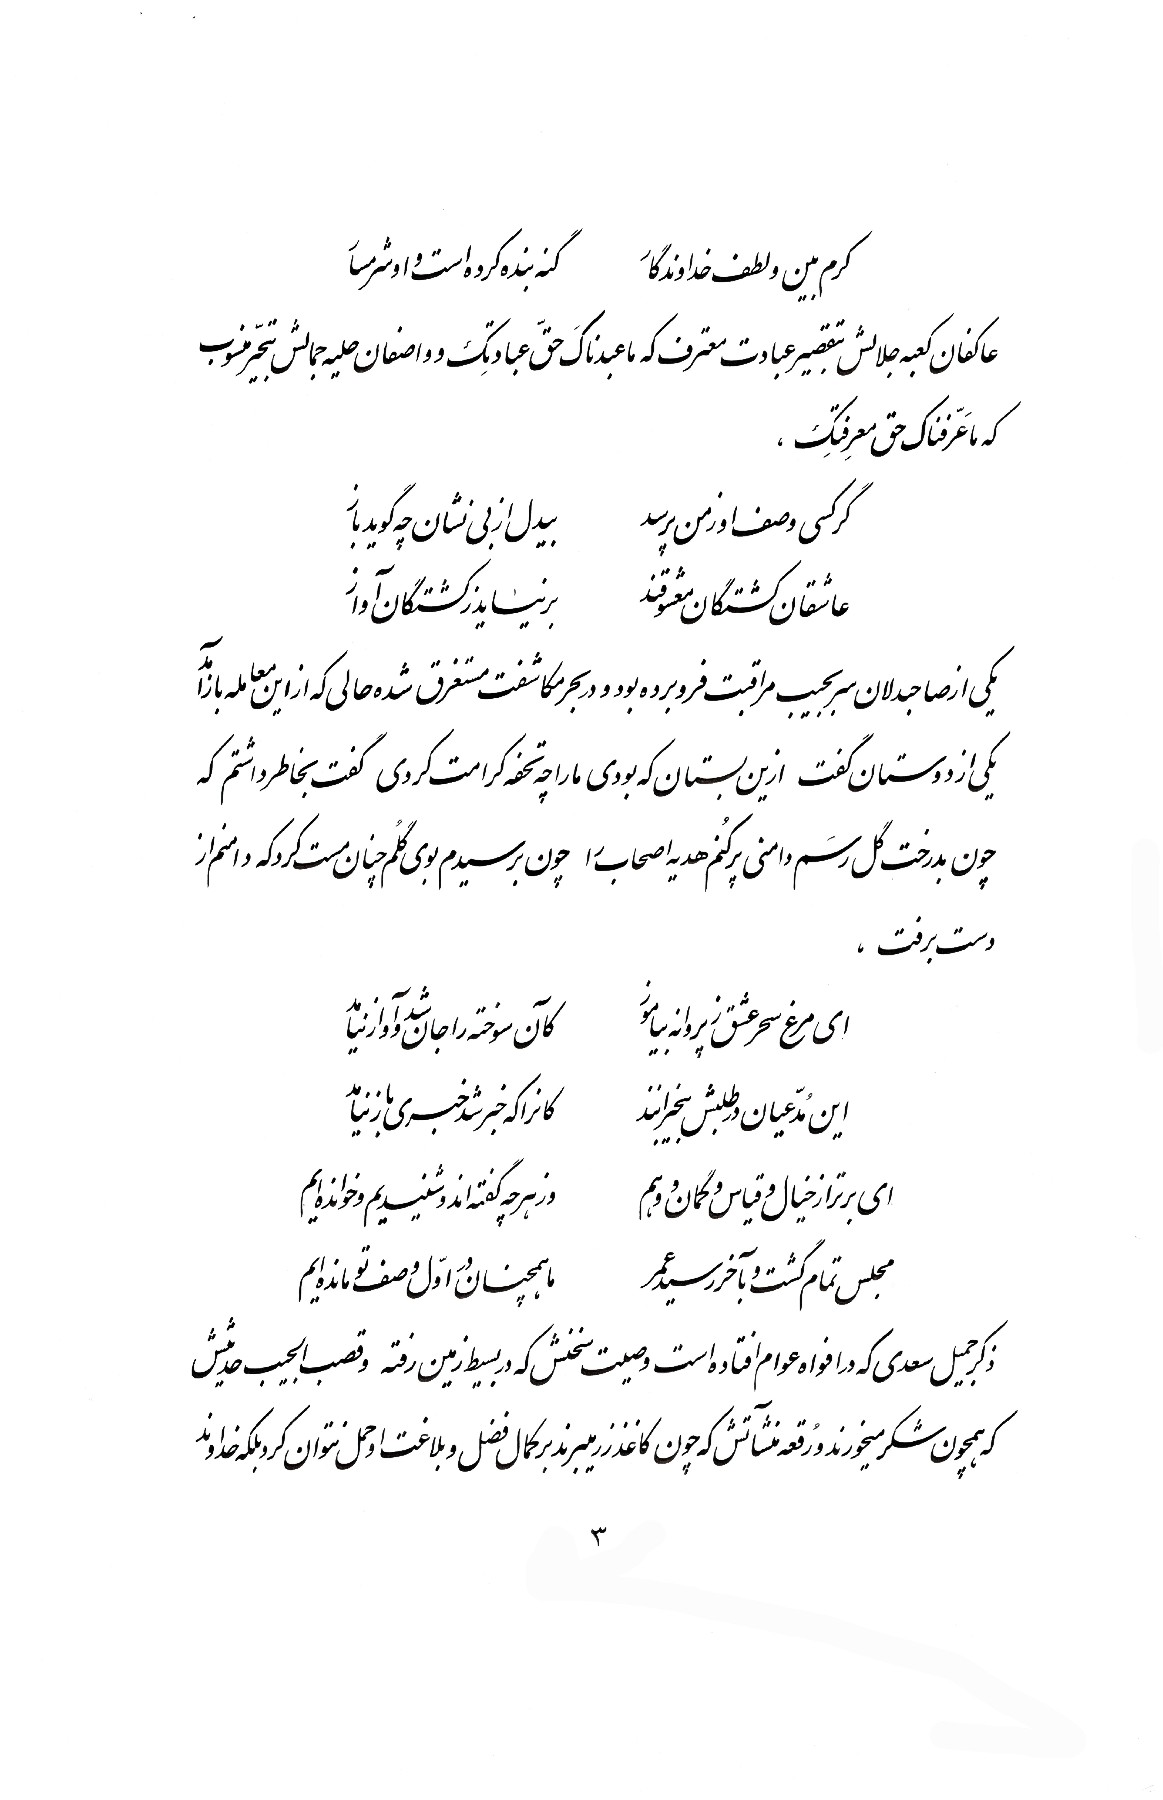 کرم بین و لطف خداوندگار گنه بنده کرده است و او شرمسار
عاکفان کعبه جلالش بتقصیر عبادت معترف که ما عبدناکَ حقّ عبادتِکَ و واصفان حلیه جمالش بتحیّر منسوب
که ما عَرَفناک حق معرفتِکَ ،
گر کسی وصف او ز من پرسد بیدل از بی نشان چه گوید باز
عاشقان کشتگان معشوقند بر نیاید ز کشتگان آواز
یکی از صاحبدلان سر بجیب مراقبت فرو برده بود و در بحر مکاشفت مستغرق شده حالی که از این معامله باز آمد
یکی از دوستان گفت ازین بستان که بودی ما را چه تحفه کرامت کردی گفت بخاطر داشتم که
چون بدرخت گل رسَم دامنی پر کُنم هدیه اصحاب را چون برسیدم بوی گُلم چنان مست کرد که دامنم از
دست برفت ،
ای مرغ سحر عشق ز پروانه بیاموز کآن سوخته را جان شد و آواز نیامد
این مُدّعیان در طلبش بیخبرانند کانرا که خبر شد خبری باز نیامد
ای برتر از خیال و قیاس و گمان و وهم وز هر چه گفته اند و شنیدیم و خوانده ایم
مجلس تمام گشت و بآخر رسید عمر ما همچنان در اوّل وصف تو مانده ایم
ذکر جمیل سعدی که در افواه عوام افتاده است وصیت سخنش که در بسیط زمین رفته و قصب الجیب حدیثش
که همچون شکر میخورند و رُقعه منشآتش که چون کاغذ زر میبرند بر کمال فضل و بلاغت او حمل نتوان کرد بلکه خداوند
۳